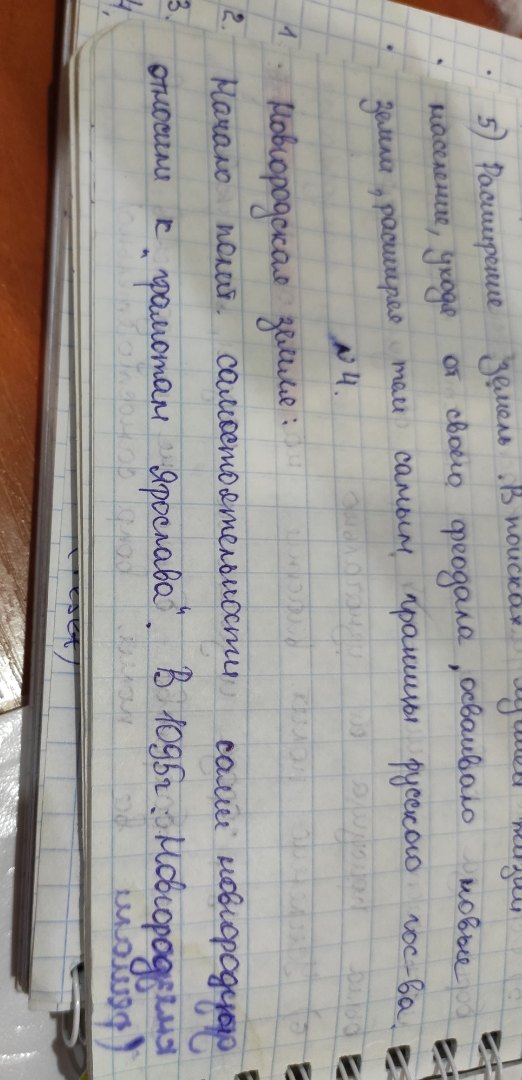 5) Расширение земель. В поисках лучшей жизни
население, уходя от своего феодала, осваивало новые
земли, расширяя тем самым границы русского гос-ва.
№4.
1 Новгородская земля:
2. Начало полит. самостоятельности сами новгородцы
3. относили к "грамотам Ярослава". В 1095г. Новгород
4.